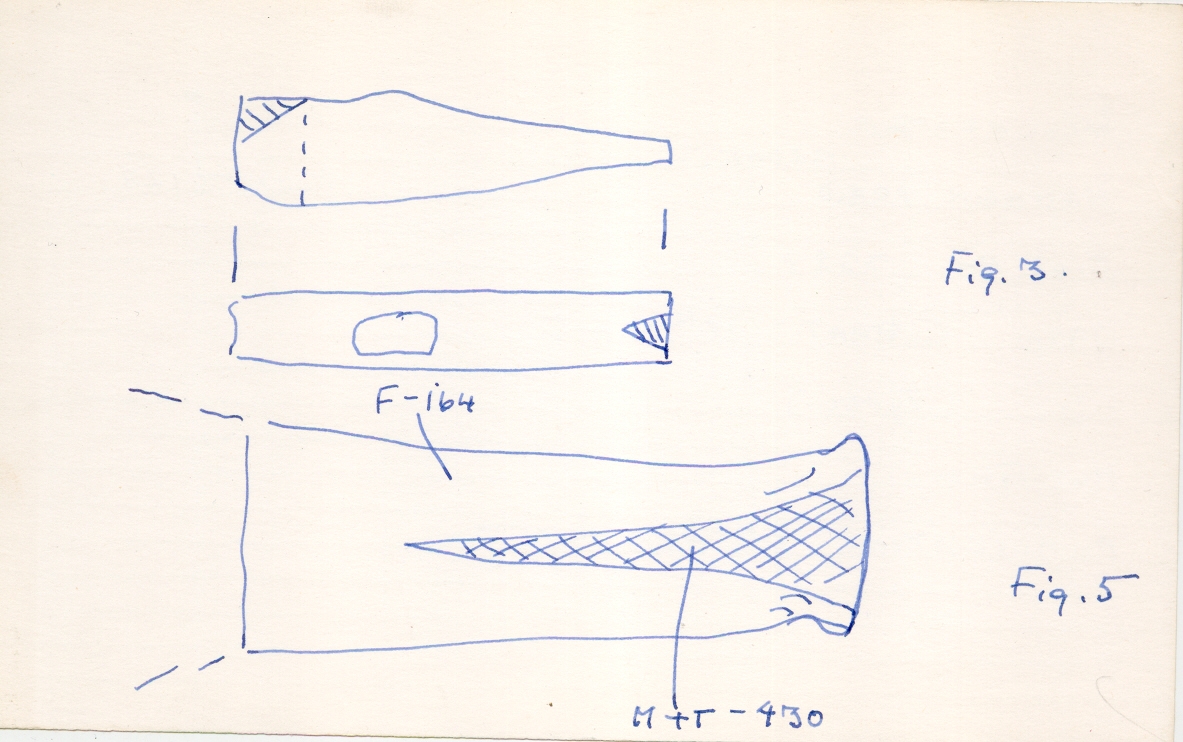 Fig. 3.
F-164
Fig. 5
M+T-430